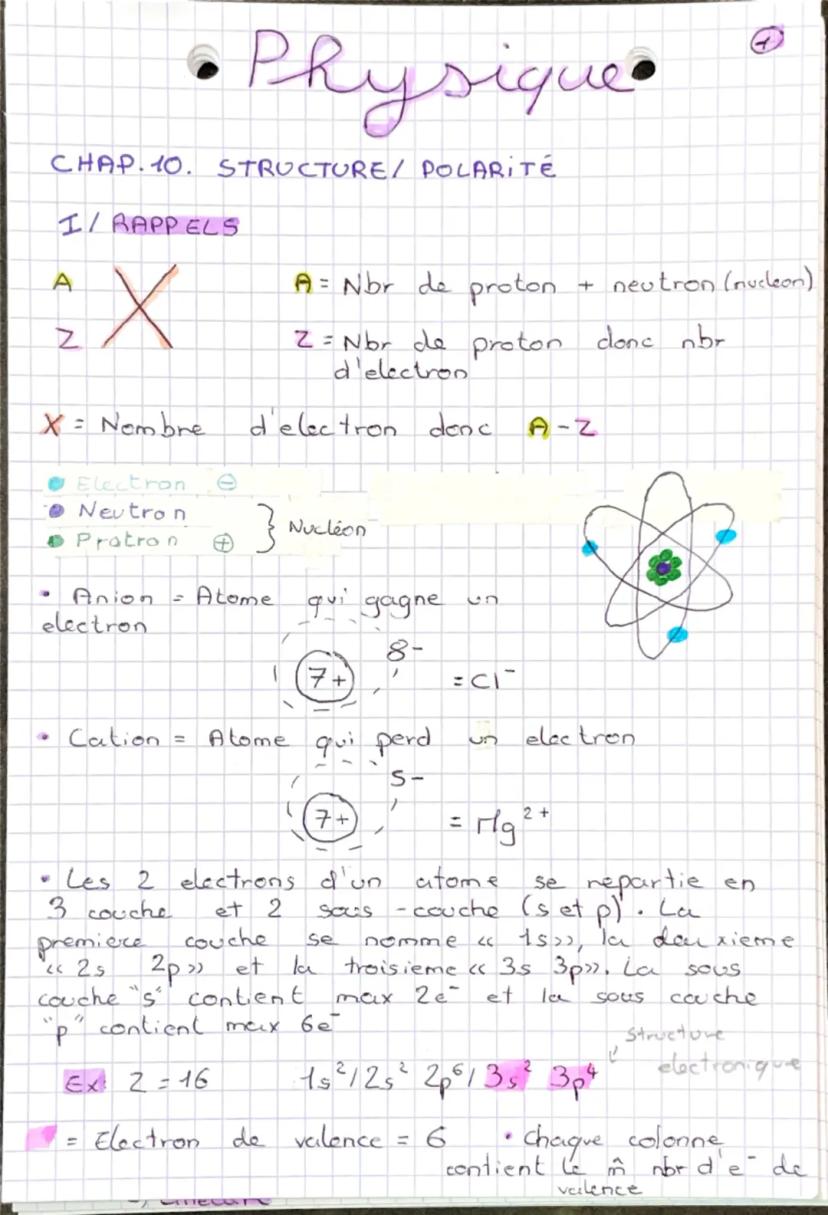 Physique
1
CHAP.10. STRUCTURE/ POLARITÉ
I/ RAPPELS
A X A = Nbr de proton + neutron (nucleon)
Z Z = Nbr de proton donc nbr
d'electron
X = Nombre d'electron donc A-Z
Electron ⊖
Neutron
Nucléon
Protron ⊕
• Anion = Atome qui gagne un
electron
8-
7+ = Cl⁻
• Cation = Atome qui perd un electron
5-
7+ = Mg²⁺
• Les 2 electrons d'un atome se repartie en
3 couche et 2 sous-couche (s et p). La
premiere couche se nomme « 1s », la deuxieme
« 2s 2p » et la troisieme « 3s 3p ». La sous
couche "s" contient max 2e⁻ et la sous couche
"p" contient max 6e⁻
structure
electronique
Ex: Z = 16 1s²/2s² 2p⁶/3s² 3p⁴
= Electron de valence = 6 • Chaque colonne
contient le m̂ nbr d'e⁻ de
valence